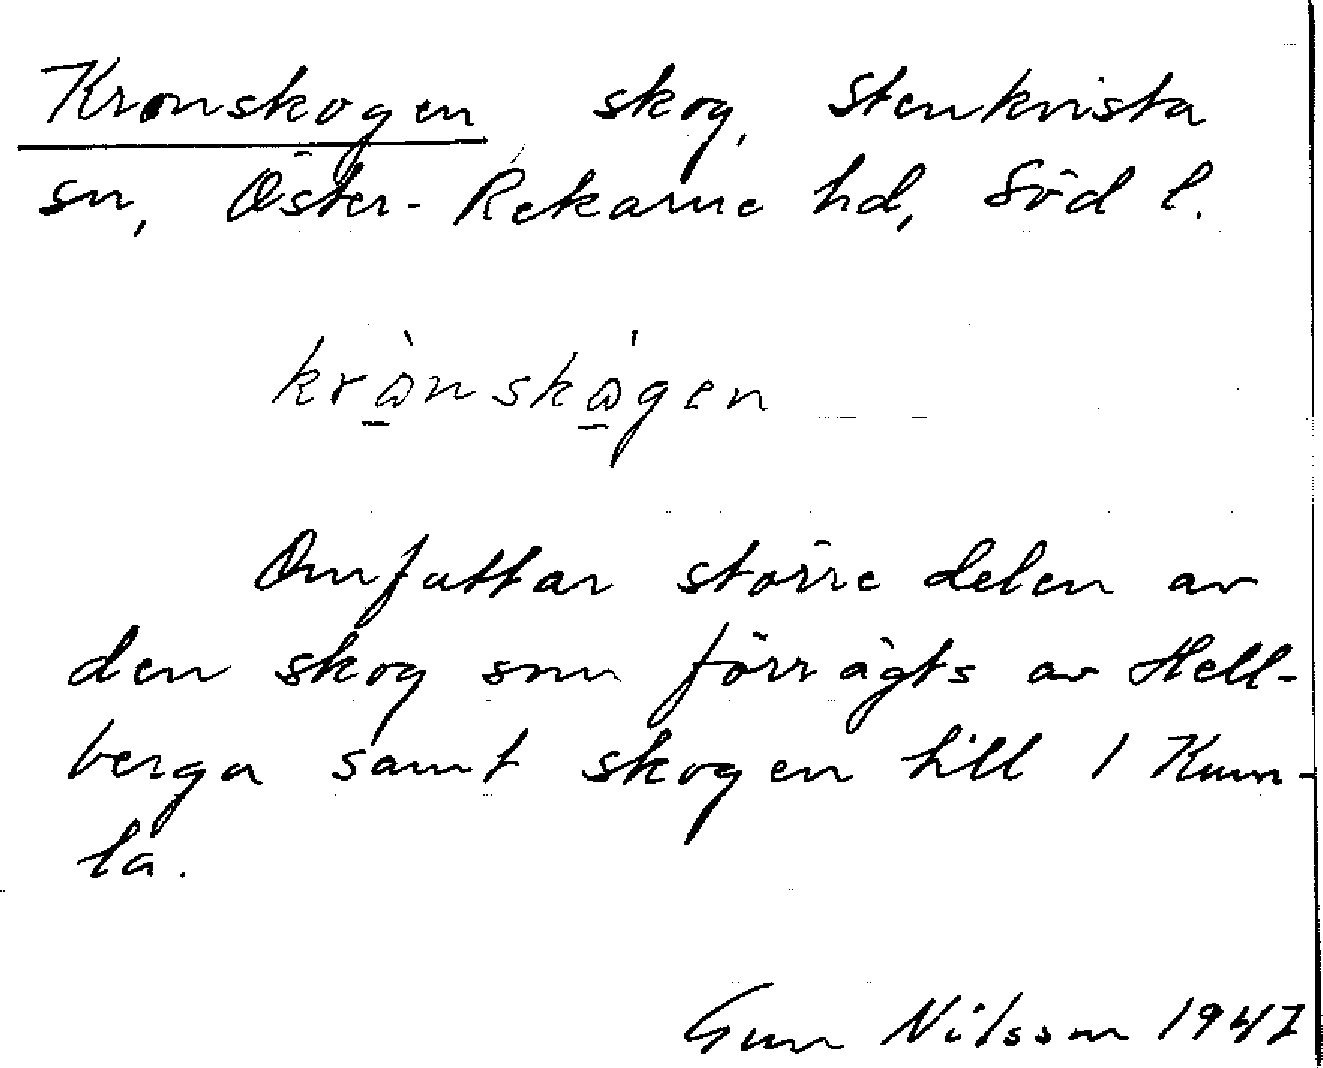 Kronskogen skog, Stenkvista
sn, Öster-Rekarne hd, Söd l.
krὼ̠nskὼ̠gen
Omfattar större delen av
den skog som förr ägts av Hell-
berga samt skogen till 1 Kum-
la.
Gun Nilsson 1947